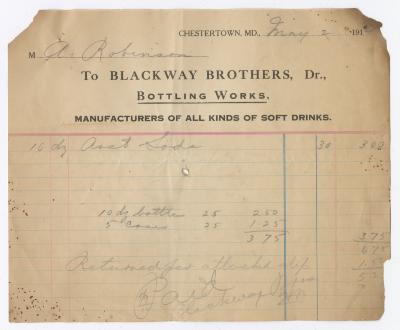 CHESTERTOWN, MD., May 2 191
M A. Robinson
To BLACKWAY BROTHERS, Dr.,
BOTTLING WORKS,
MANUFACTURERS OF ALL KINDS OF SOFT DRINKS.
10 dz Asst Soda 30 3.00
10 dz bottles 25 2.50
5 cases 25 1.25
3 75 3.75
6.75
Returned per attached slip
Paid